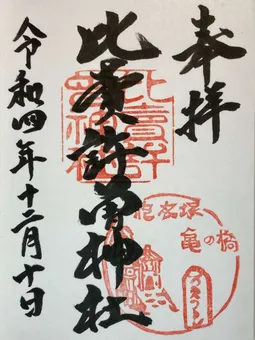 奉拝
比賣許曽神社
令和四年十二月十日
比賣許曽神社
亀の橋